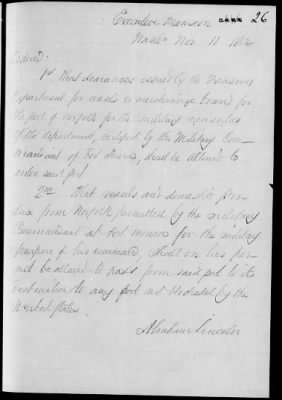 Executive Mansion 26
Wash. Nov. 11 1862
Ordered:
1st that clearances issued by the Treasury
Department for vessels or merchandise bound for
the port of Norfolk for the military necessities
of the department, certified by the Military Com-
mandant at Fort Monroe, shall be allowed to
enter said port.
2nd that vessels and domestic pro-
duce from Norfolk permitted by the military
Commandant at Fort Monroe for the military
purposes of his command, shall on his per-
mit be allowed to pass from said port to its
destination to any port not blockaded by the
United States.
Abraham Lincoln